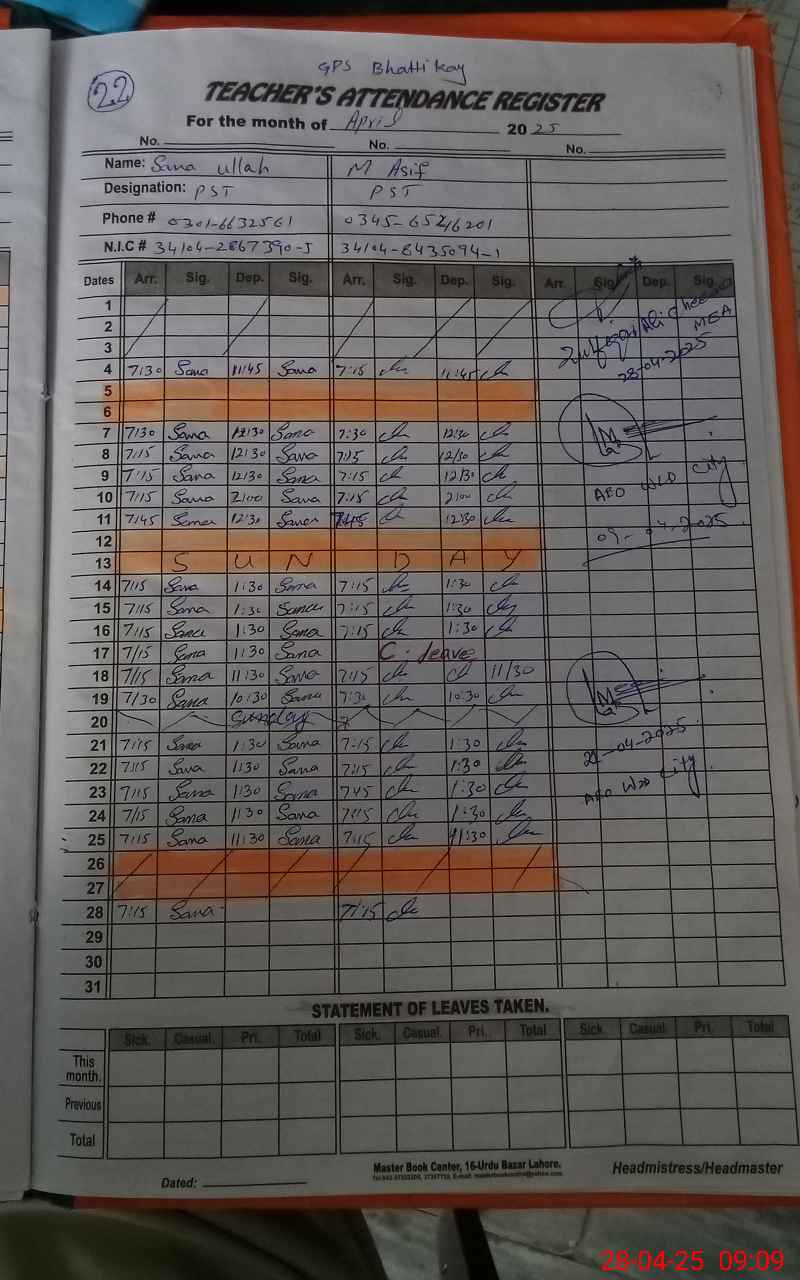 22
GPS Bhatti Kay
TEACHER'S ATTENDANCE REGISTER
For the month of April 2025
No. No. No.
Name: Sana ullah M Asif
Designation: PST PST
Phone # 0301-6632561 0345-65246201
N.I.C # 34104-2867390-5 34104-8435094-1
Dates Arr. Sig. Dep. Sig. Arr. Sig. Dep. Sig. Arr. Sig. Dep. Sig.
1
2
3
Ali Cheema
MEA
28-04-2025
4 7:30 Sana 11:45 Sana 7:15 11:45
5
6
7 7:30 Sana 12:30 Sana 7:30 12:30
8 7:15 Sana 12:30 Sana 7:15 12:30
9 7:15 Sana 12:30 Sana 7:15 12:30
10 7:15 Sana 2:00 Sana 7:15 2:00
AEO WZD City
11 7:45 Sana 12:30 Sana 7:45 12:30
09-04-2025
12
13 S U N D A Y
14 7:15 Sana 1:30 Sana 7:15 1:30
15 7:15 Sana 1:30 Sana 7:15 1:30
16 7:15 Sana 1:30 Sana 7:15 1:30
17 7:15 Sana 1:30 Sana C. leave
18 7:15 Sana 11:30 Sana 7:15 11:30
19 7:30 Sana 10:30 Sana 7:30 10:30
20 Sunday
21 7:15 Sana 1:30 Sana 7:15 1:30
21-04-2025
22 7:15 Sana 1:30 Sana 7:15 1:30
23 7:15 Sana 1:30 Sana 7:45 1:30
AEO WZD City
24 7:15 Sana 1:30 Sana 7:15 1:30
25 7:15 Sana 11:30 Sana 7:15 11:30
26
27
28 7:15 Sana 7:15
29
30
31
STATEMENT OF LEAVES TAKEN.
Sick. Casual. Pri. Total Sick. Casual. Pri. Total Sick. Casual. Pri. Total
This month.
Previous
Total
Dated:
Master Book Center, 16-Urdu Bazar Lahore.
Headmistress/Headmaster
28-04-25 09:09